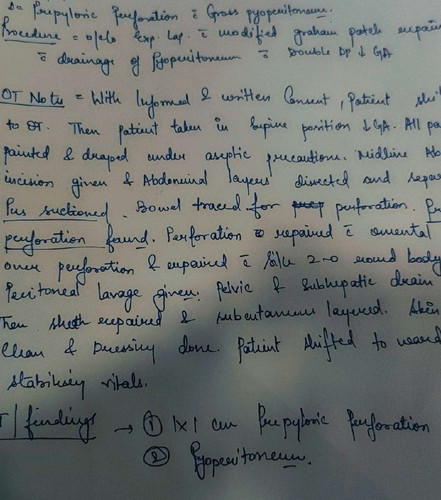 Δ = Prepyloric Perforation c̄ Gross pyoperitoneum.
Procedure = Exp. Lap. c̄ modified graham patch repair
c̄ drainage of Pyoperitoneum c̄ Double DP ↓ GA
OT Notes = With Informed & written Consent, Patient shi
to OT. Then patient taken in Supine position ↓ GA. All pa
Painted & draped under aseptic precautions. Midline Ab
incision given & Abdominal layers disected and sepa
Pus suctioned. Bowel traced for perforation. Pr
perforation found. Perforation repaired c̄ omental
over perforation & repaired c̄ Silk 2-0 round body
Peritoneal lavage given. Pelvic & Subhepatic drain
Then sheath repaired & subcutaneous layered. Skin
Clean & Dressing done. Patient shifted to ward
vitals.
T/findings → ① 1x1 cm Prepyloric perforation
② Pyoperitoneum.